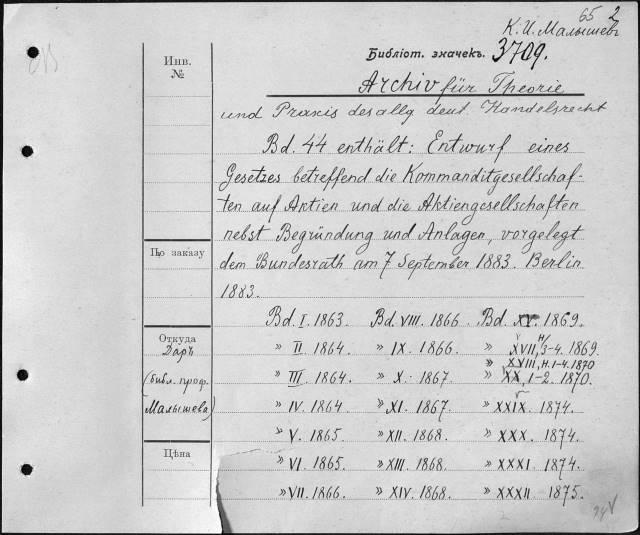 65 2
К. И. Малышевъ
Библіот. значекъ. 3709.
Инв.
№
Archiv für Theorie
und Praxis des allg deut. Handelsrecht
Bd. 44 enthält: Entwurf eines
Gesetzes betreffend die Kommanditgesellschaf-
ten auf Aktien und die Aktiengesellschaften
nebst Begründung und Anlagen, vorgelegt
По заказу
dem Bundesrath am 7 September 1883. Berlin
1883.
Bd. I. 1863. Bd. VIII. 1866 Bd. XV. 1869.
Откуда
Даръ
(библ. проф.
Малышева)
" II 1864. " IX. 1866. " XVII, H. 3-4. 1869.
" XVIII, H. 1-4. 1870
" III 1864. " X. 1867 " XX, 1-2. 1870.
" IV. 1864 " XI. 1867. " XXIX. 1874.
" V. 1865 " XII. 1868. " XXX. 1874.
Цѣна
" VI. 1865. " XIII. 1868. " XXXI. 1874.
" VII. 1866. " XIV. 1868. " XXXII. 1875.